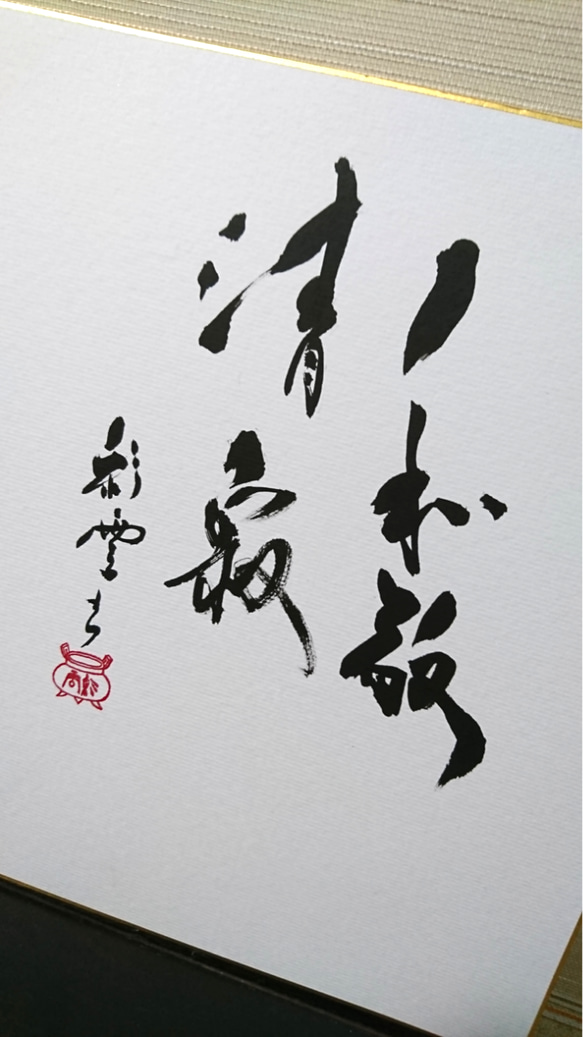 和敬
清寂
彩雲